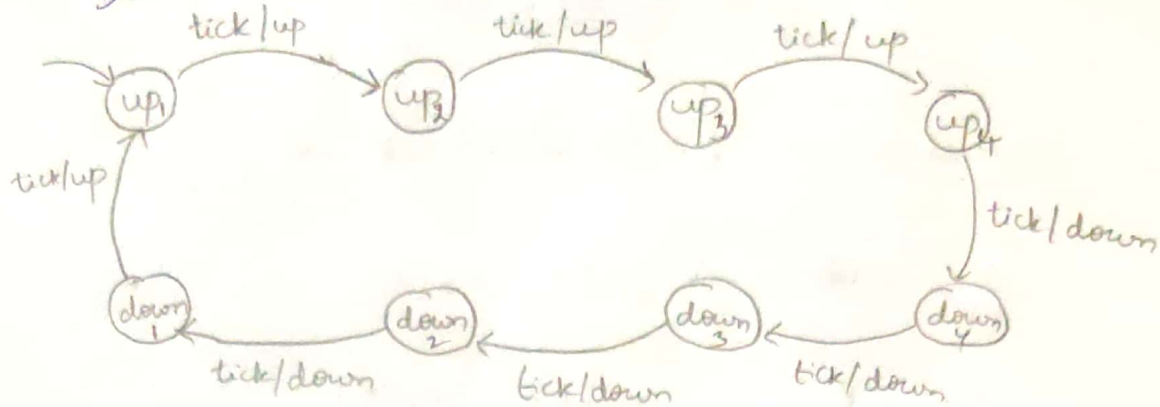 tick/up tick/up tick/up
up1 up2 up3 up4
tick/up
tick/down
down
1
down
2
down
3
down
4
tick/down tick/down tick/down